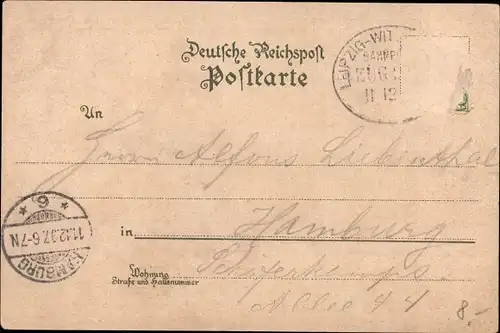 Deutsche Reichspost
Postkarte
LEIPZIG-WIT
BAHNP
ZUG
11 12
An
Herrn Alfons Liebenthal
in Hamburg
Wohnung
Straße und Hausnummer
Schäferkamps
Allee 44
HAMBURG
11.12.97.6-7N
* 6 *
8.-